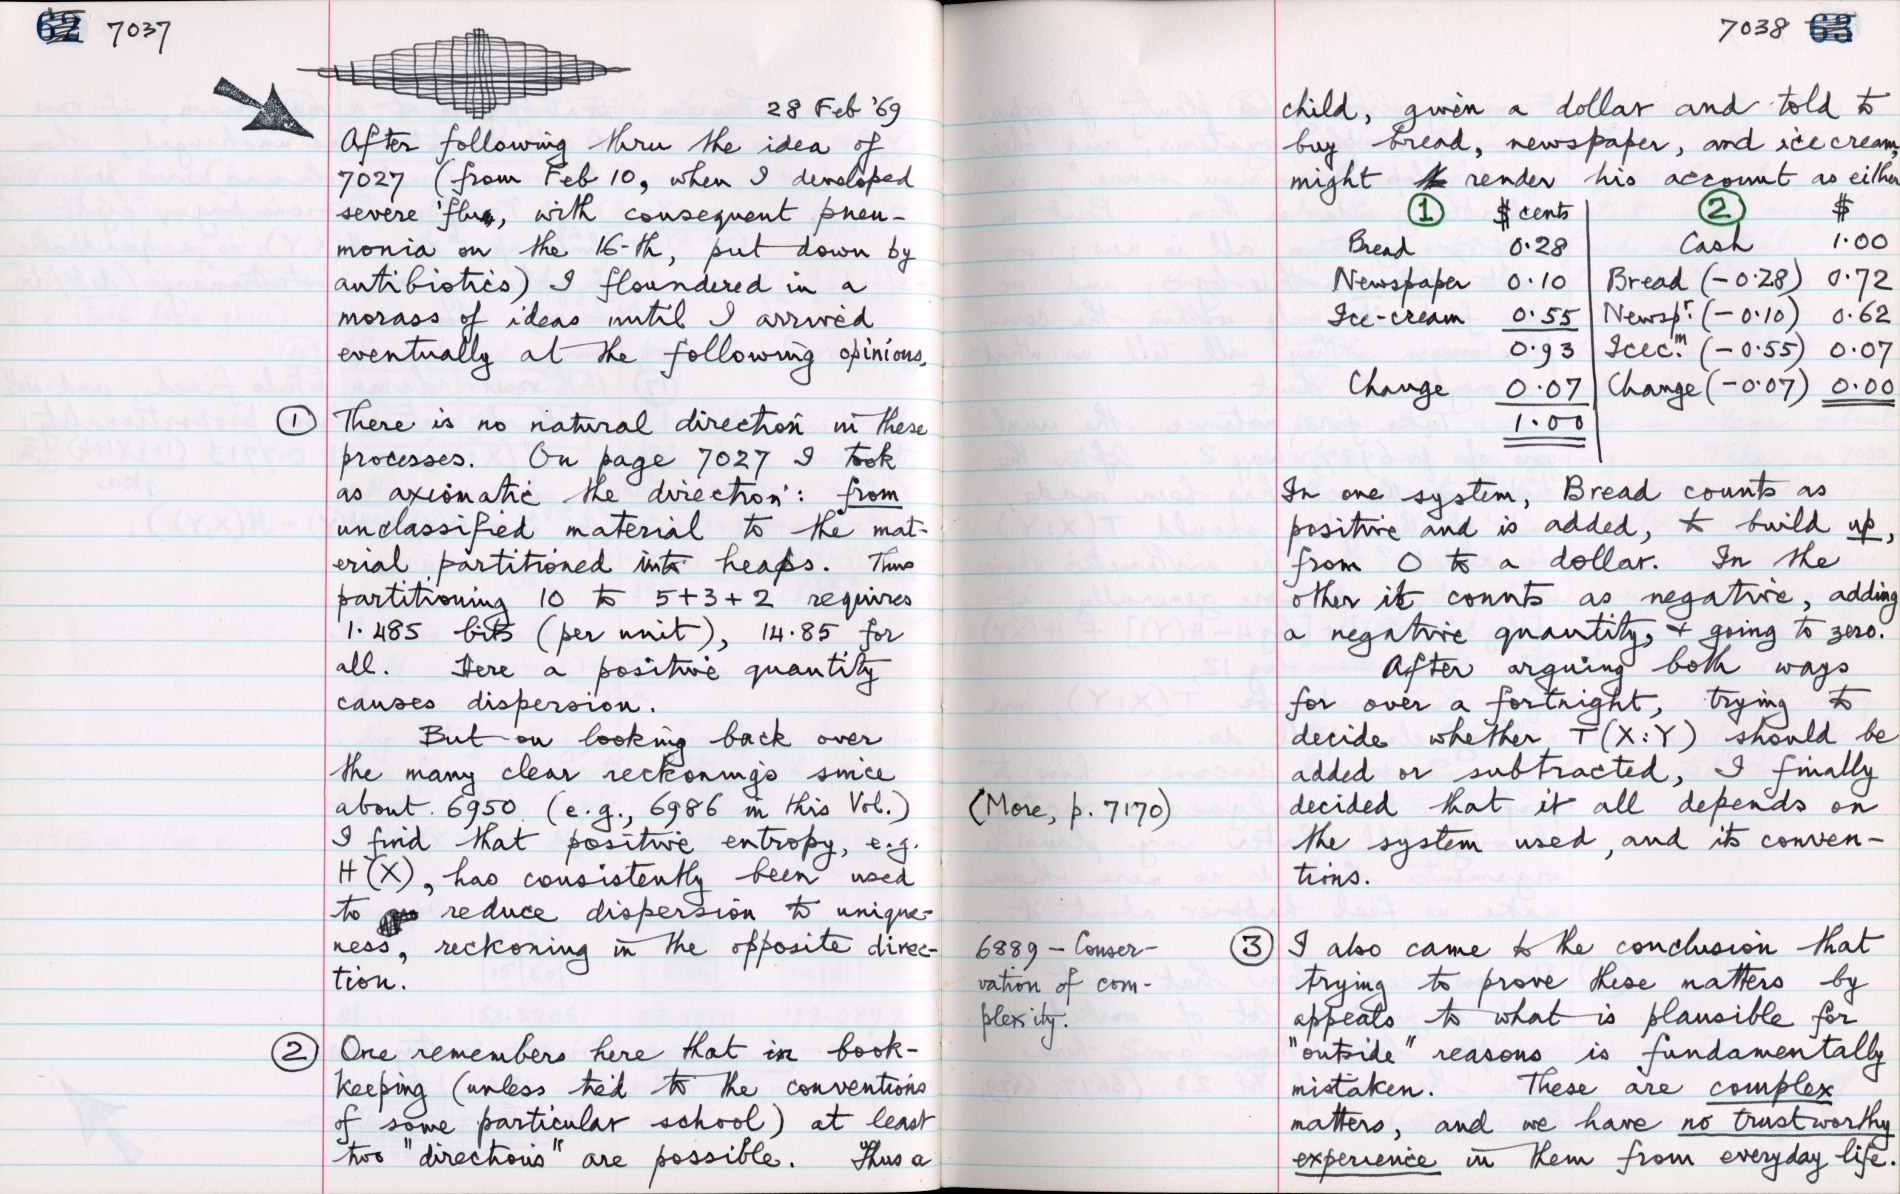 62 7037
28 Feb '69
After following thru the idea of
7027 (from Feb 10, when I developed
severe 'flu, with consequent pneu-
monia on the 16-th, put down by
antibiotics) I floundered in a
morass of ideas until I arrived
eventually at the following opinions.
① There is no natural direction in these
processes. On page 7027 I took
as axiomatic the direction: from
unclassified material to the mat-
erial partitioned into heaps. Thus
partitioning 10 to 5+3+2 requires
1.485 bits (per unit), 14.85 for
all. Here a positive quantity
causes dispersion.
But on looking back over
the many clear reckonings since
about 6950 (e.g., 6986 in this Vol.)
I find that positive entropy, e.g.
H(X), has consistently been used
to reduce dispersion to unique-
ness, reckoning in the opposite direc-
tion.
② One remembers here that in book-
keeping (unless tied to the conventions
of some particular school) at least
two "directions" are possible. Thus a
7038 63
child, given a dollar and told to
buy bread, newspaper, and ice cream,
might render his account as either
① $ cents ② $
Bread 0.28 Cash 1.00
Newspaper 0.10 Bread (-0.28) 0.72
Ice-cream 0.55 Newspr. (-0.10) 0.62
0.93 Icecm. (-0.55) 0.07
Change 0.07 Change (-0.07) 0.00
1.00
In one system, Bread counts as
positive and is added, to build up,
from 0 to a dollar. In the
other it counts as negative, adding
a negative quantity, + going to zero.
After arguing both ways
for over a fortnight, trying to
decide whether T(X:Y) should be
added or subtracted, I finally
(More, p. 7170) decided that it all depends on
the system used, and its conven-
tions.
6889 – Conser-
vation of com-
plexity.
③ I also came to the conclusion that
trying to prove these matters by
appeals to what is plausible for
"outside" reasons is fundamentally
mistaken. These are complex
matters, and we have no trustworthy
experience in them from everyday life.